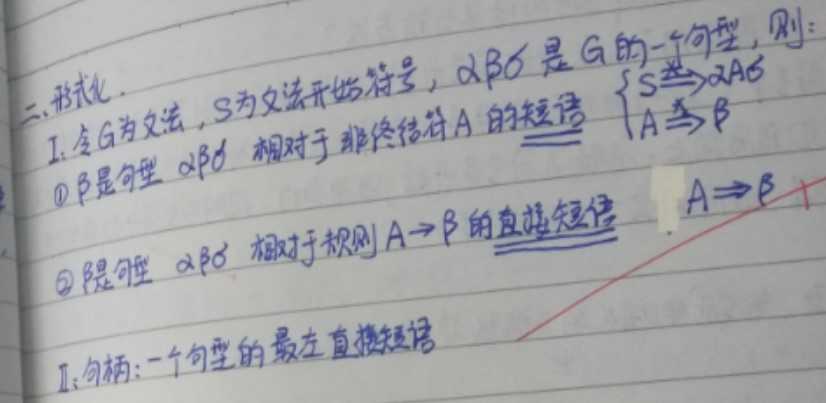 二、形式化.
I：令G为文法，S为文法开始符号，αβδ 是 G 的一个句型，则：
①β是句型 αβδ 相对于非终结符A 的短语 { S *⇒ αAδ
A *⇒ β
②β是句型 αβδ 相对于规则 A→β 的直接短语 A⇒β
II：句柄：一个句型的最左直接短语